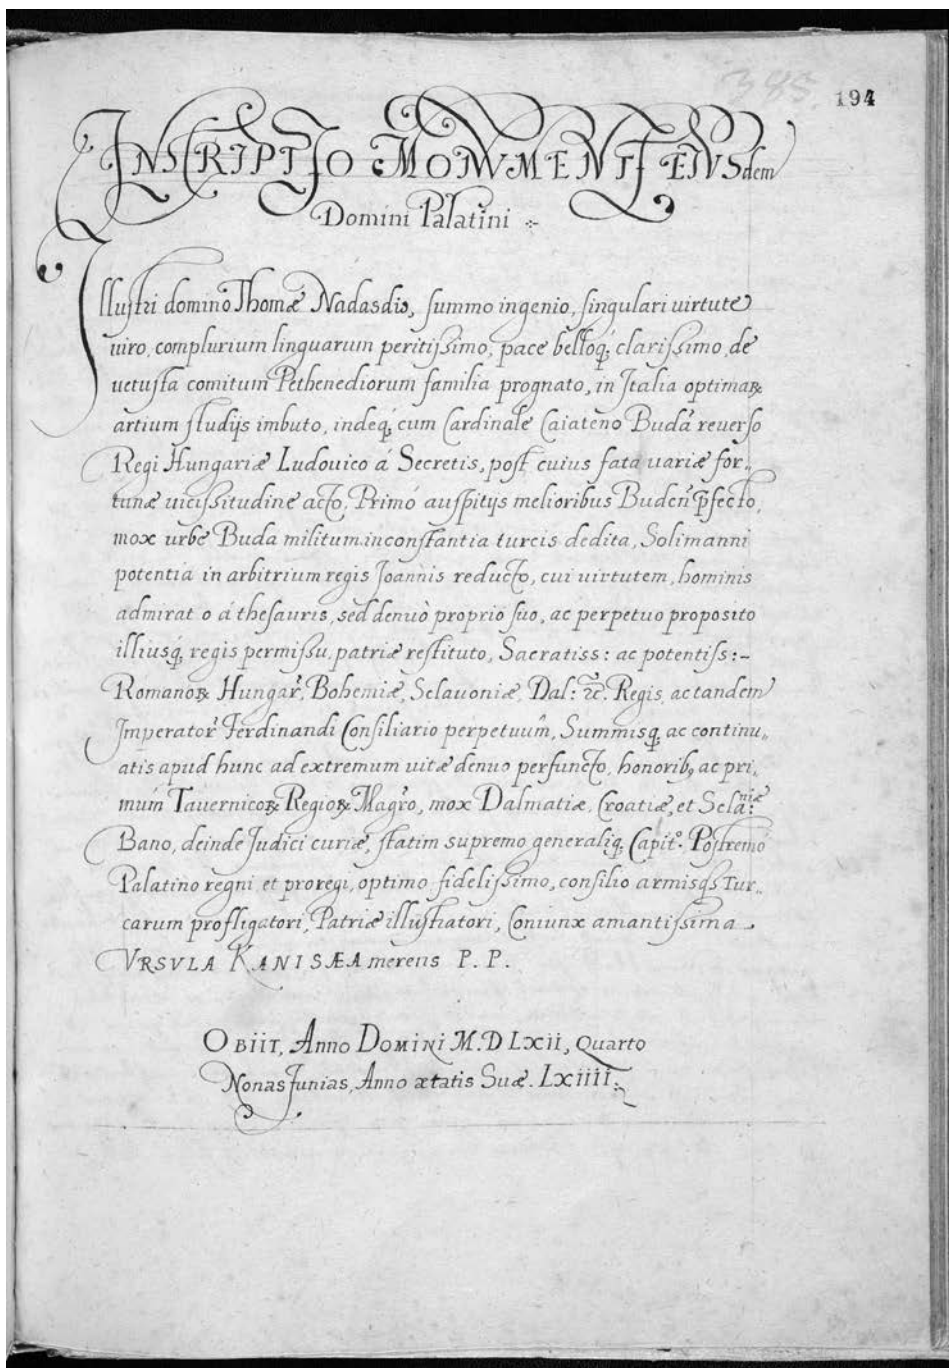 385.
194
INSCRIPTIO MONVMENTI EIVSdem
Domini Palatini
Illustri domino Thomæ Nadasdio, summo ingenio, singulari uirtute
uiro, complurium linguarum peritissimo, pace belloq́; clarissimo, de
uetusta comitum Pethenediorum familia prognato, in Italia optimaꝝ
artium studijs imbuto, indeq́; cum Cardinale Caiateno Budá reuerso
Regi Hungariæ Ludouico á Secretis, post cuius fata uariæ for„
tunæ uicissitudine acto, Primó auspitijs melioribus Budeñ p̃fecto,
mox urbe Buda militum inconstantia turcis dedita, Solimanni
potentia in arbitrium regis Joannis reducto, cui uirtutem, hominis
admirato á thesauris, sed denuò proprio suo, ac perpetuo proposito
illiusq́; regis permissu, patriæ restituto, Sacratiss: ac potentiss:-
Romanoꝝ Hungar̃, Bohemiæ, Sclauoniæ, Dal: ꝛc̃. Regis, ac tandem
Imperator̃ Ferdinandi Consiliario perpetuum̃, Summisq; ac continu„
atis apud hunc ad extremum uitæ denuo perfuncto, honorib9 ac pri„
mum̃ Tauernicoꝝ Regioꝝ Magr̃o, mox Dalmatiæ, Croatiæ, et Sclaniæ:
Bano, deinde Judici curiæ, statim supremo generaliq; Capit°. Postremó
Palatino regni et proregi, optimo fidelissimo, consilio armisqʒ Tur„
carum profligatori, Patriæ illustratori, Coniunx amantissima
VRSVLA KANISÆA merens P. P.
OBIIT, Anno DOMINI M.D LXII, Quarto
Nonas Junias, Anno ætatis Suæ. LXIIII.